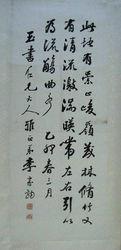 此地有崇山峻嶺茂林脩竹又
有清流激湍暎帶左右引以
為流觴曲水乙卯春三月
玉書仁兄大人雅正弟李